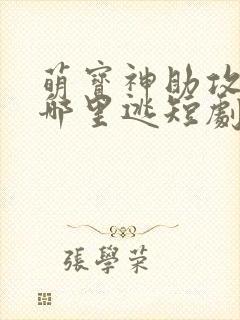 萌寶神助攻
哪里逃短劇
張學荣